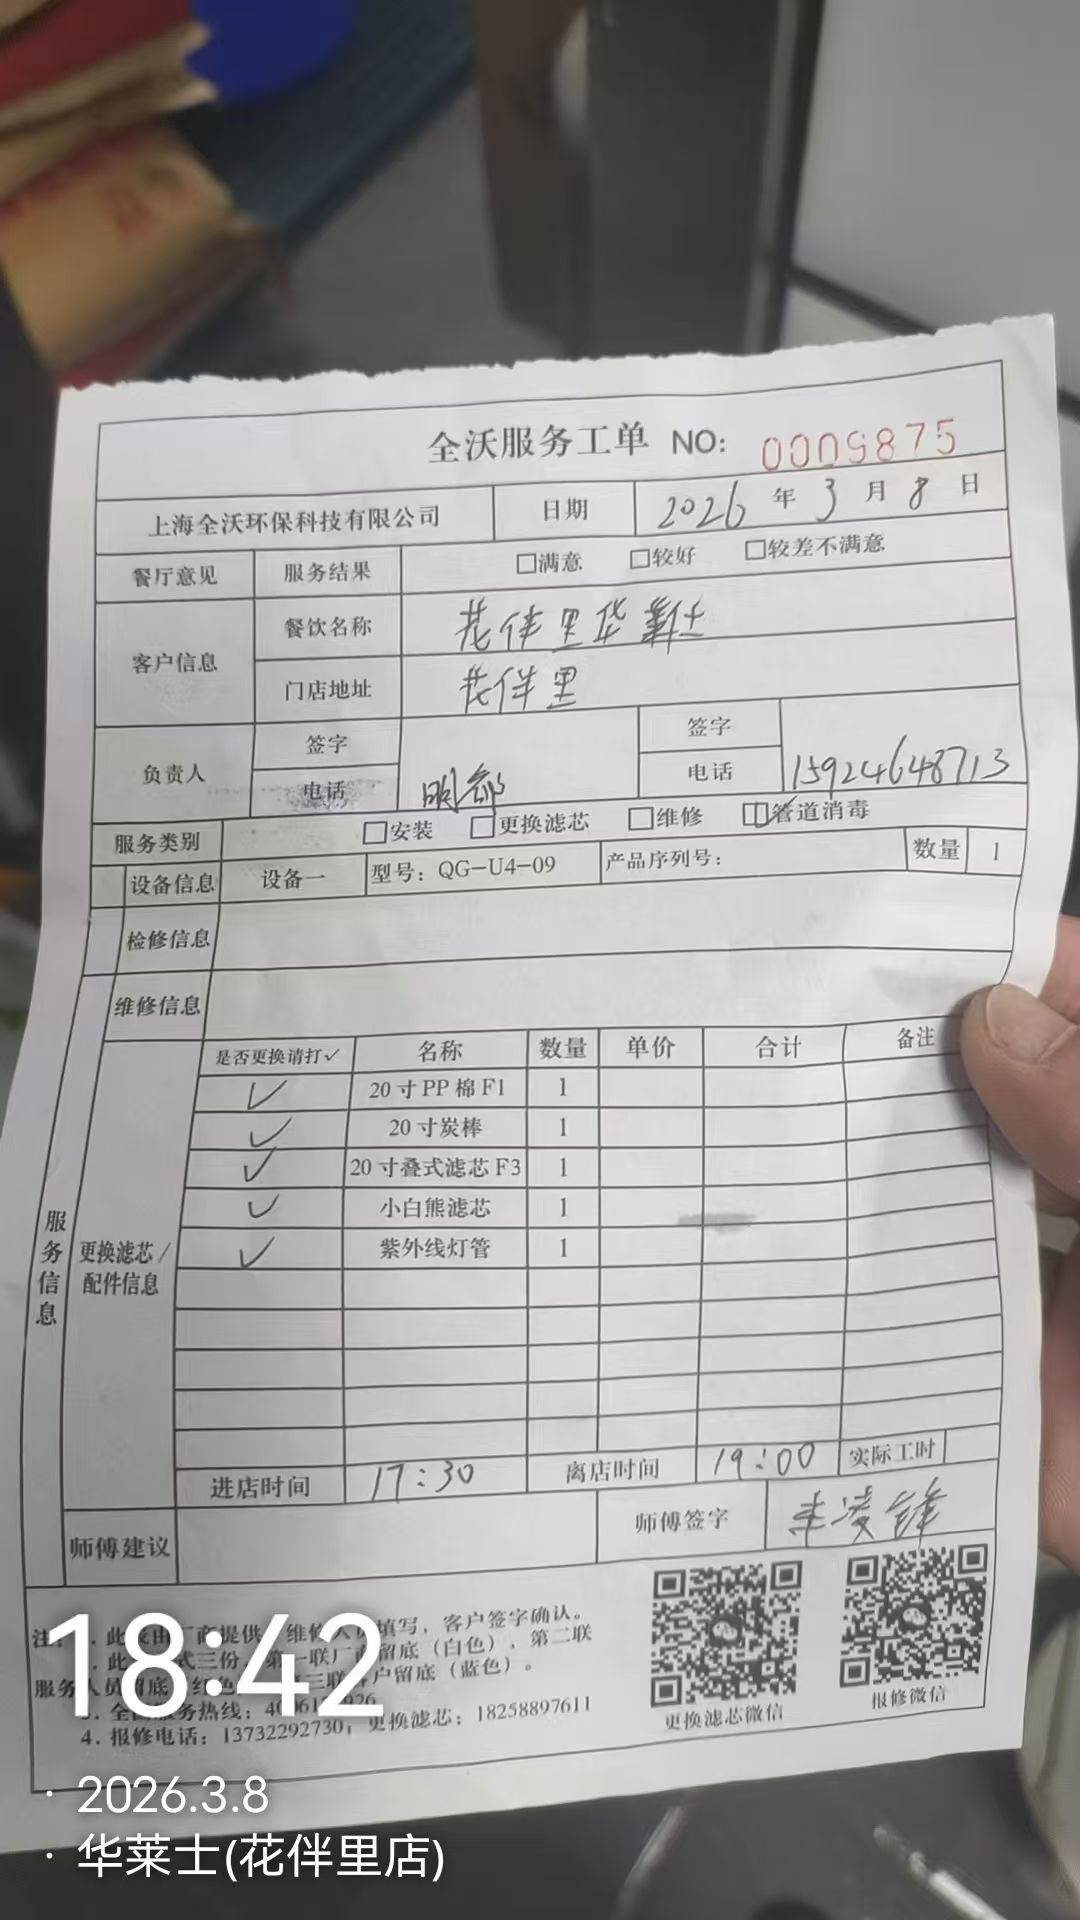 全沃服务工单 NO: 0009875
上海全沃环保科技有限公司 日期 2026年3月8日
餐厅意见 服务结果 □满意 □较好 □较差不满意
客户信息 餐饮名称 花伴里华莱士
门店地址 花伴里
负责人 签字 签字
电话 电话 15924648713
服务类别 □安装 □更换滤芯 □维修 □管道消毒
设备信息 设备一 型号：QG-U4-09 产品序列号： 数量 1
检修信息
维修信息
服务信息
更换滤芯/配件信息
是否更换请打✓ 名称 数量 单价 合计 备注
✓ 20寸PP棉F1 1
✓ 20寸炭棒 1
✓ 20寸叠式滤芯F3 1
✓ 小白熊滤芯 1
✓ 紫外线灯管 1
进店时间 17:30 离店时间 19:00 实际工时
师傅建议 师傅签字
填写，客户签字确认。
留底（白色），第二联
服务人员留底 户留底（蓝色）。
服务热线：
4. 报修电话：13732292730；更换滤芯：18258897611
更换滤芯微信 报修微信
18:42
· 2026.3.8
· 华莱士(花伴里店)